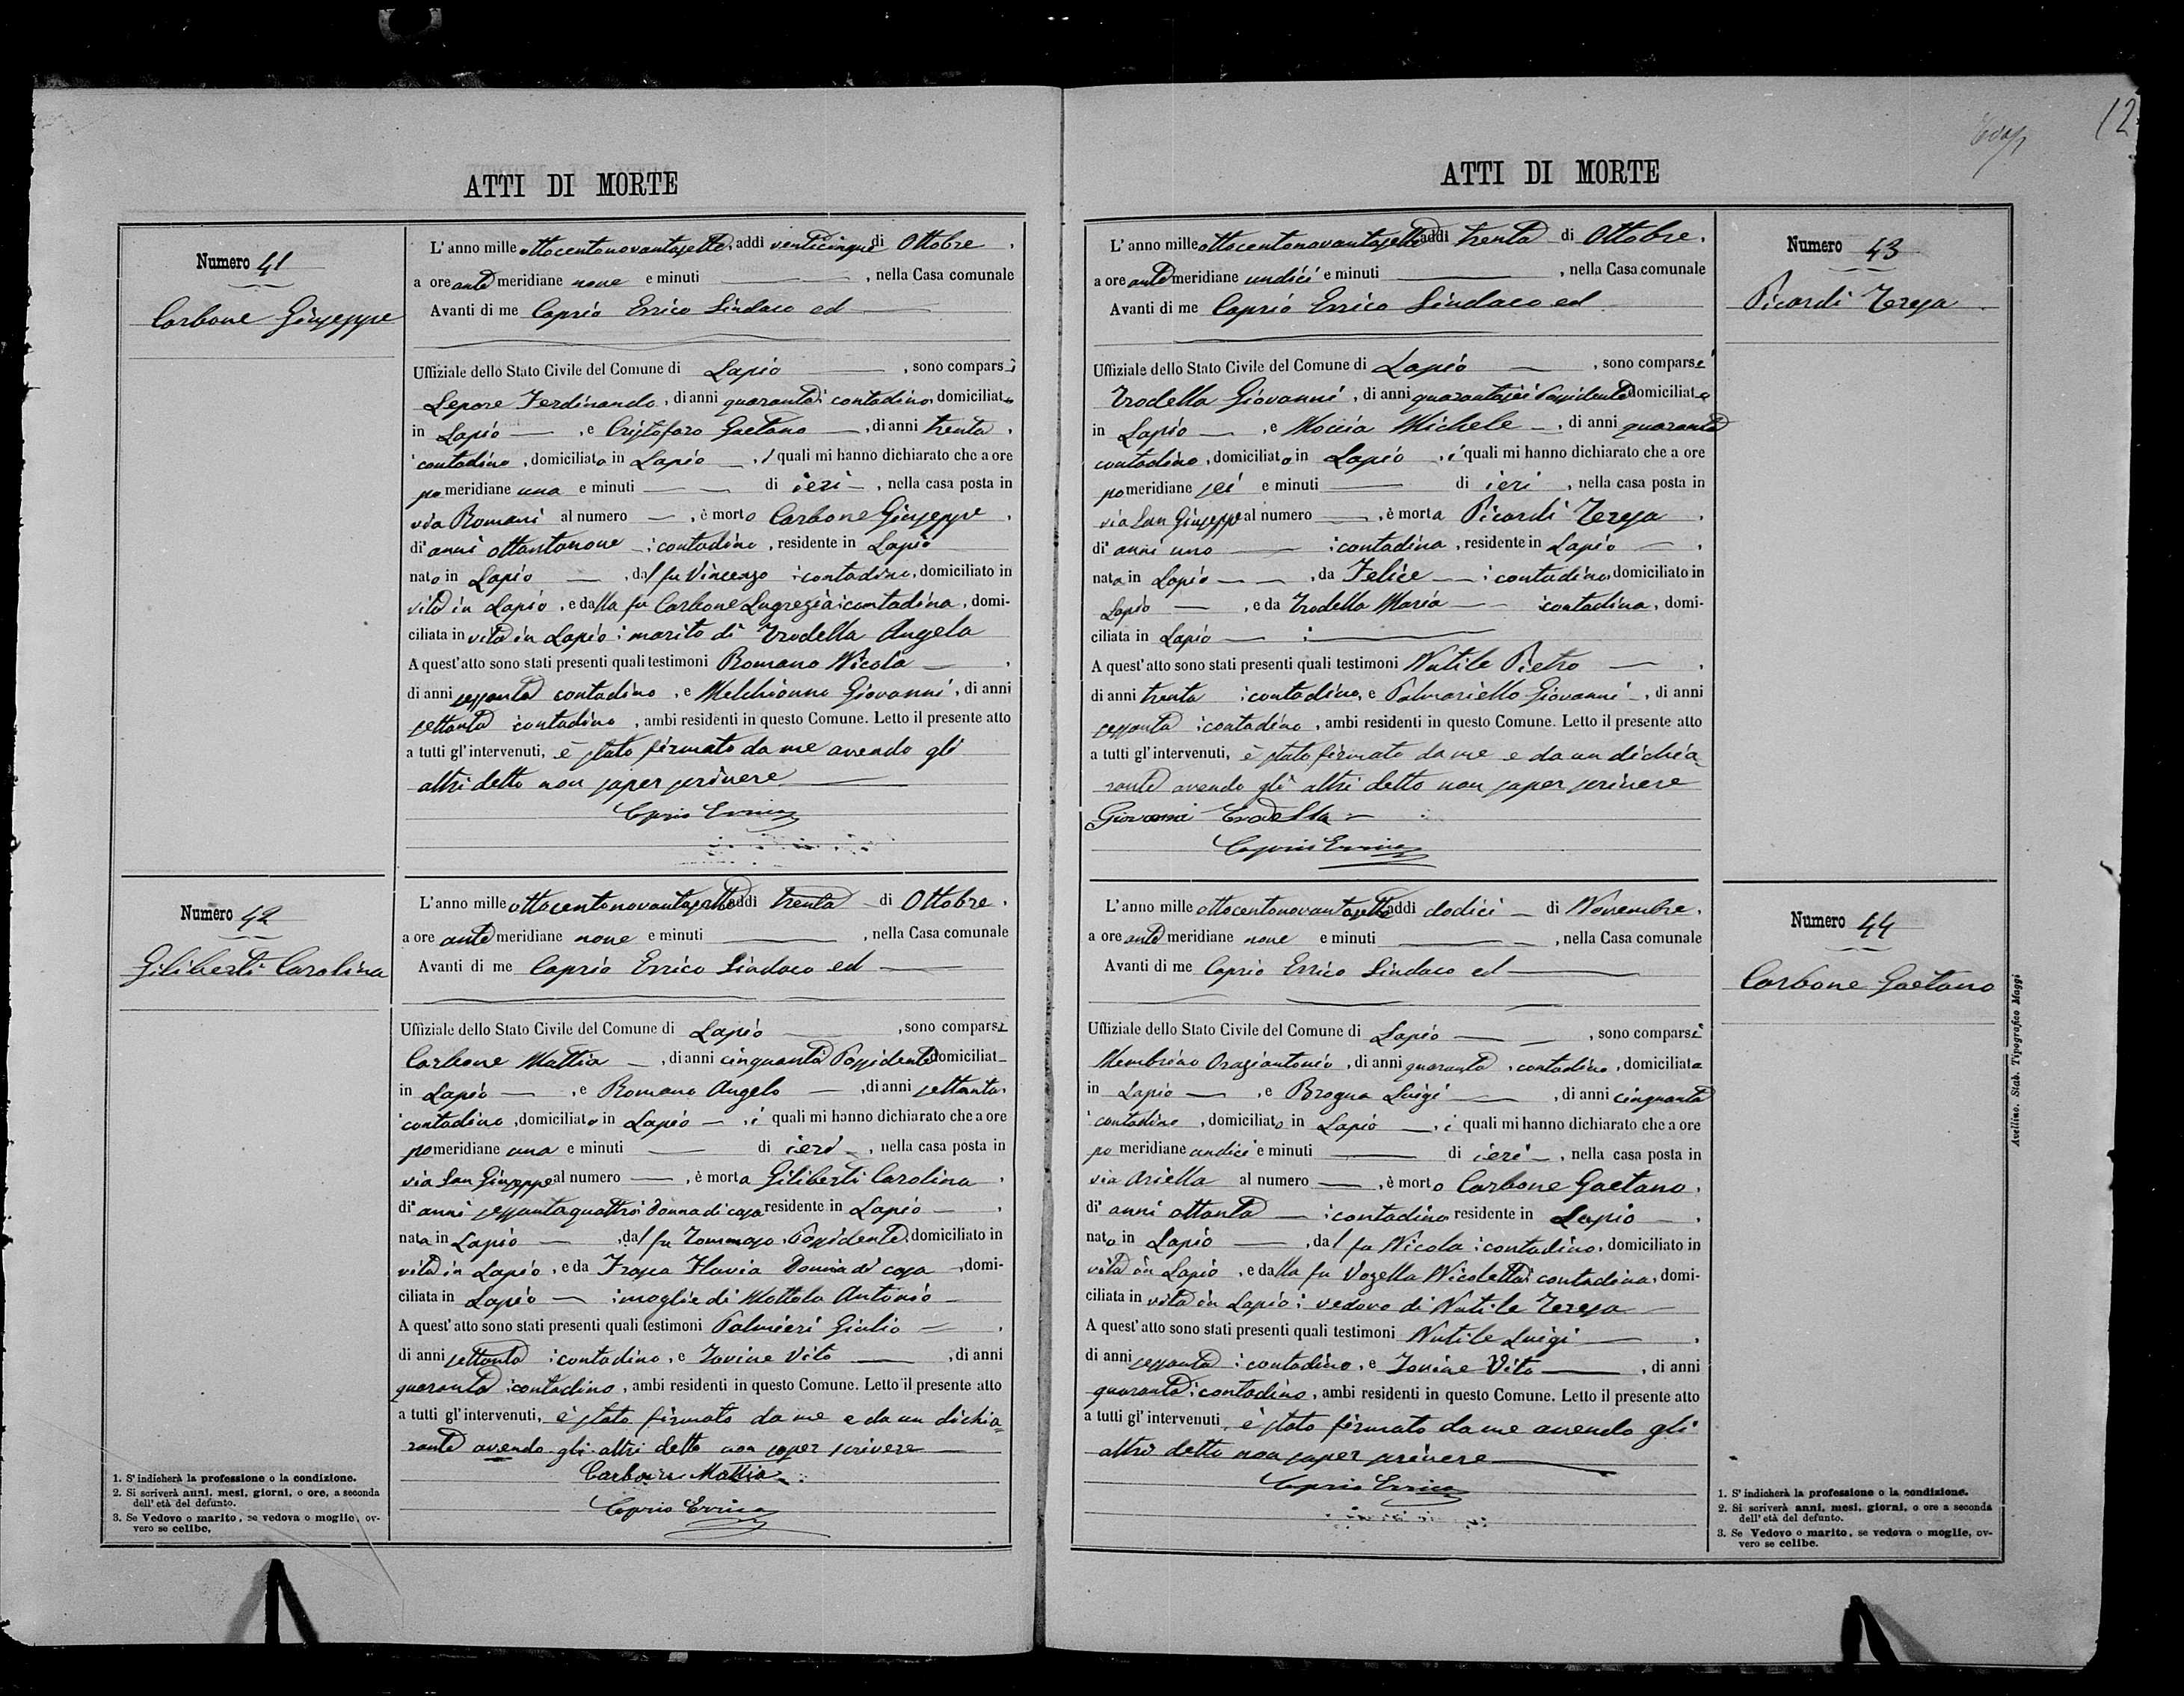 12
ATTI DI MORTE
Numero 41
Carbone Giuseppe
L'anno mille ottocentonovantasette, addi venticinque di Ottobre,
a ore ante meridiane nove e minuti , nella Casa comunale
Avanti di me Caprio Errico Sindaco ed
Uffiziale dello Stato Civile del Comune di Lapio , sono comparsi
Lepore Ferdinando, di anni quaranta: contadino, domiciliato
in Lapio , e Cristofaro Gaetano , di anni trenta,
contadino, domiciliato in Lapio , i quali mi hanno dichiarato che a ore
pomeridiane una e minuti di ieri , nella casa posta in
via Romani al numero , è morto Carbone Giuseppe,
di anni ottantanove : contadino, residente in Lapio
nato in Lapio , dal fu Vincenzo : contadino, domiciliato in
vita in Lapio, e dalla fu Carbone Lugrezia: contadina, domi-
ciliata in vita in Lapio: marito di Trodella Angela
A quest'atto sono stati presenti quali testimoni Romano Nicola ,
di anni sessanta contadino, e Melchionno Giovanni, di anni
settanta contadino, ambi residenti in questo Comune. Letto il presente atto
a tutti gl'intervenuti, è stato firmato da me avendo gli
altri detto non saper scrivere
Caprio Errico
Numero 42
Giliberti Carolina
L'anno mille ottocentonovantasette addi trenta di Ottobre,
a ore ante meridiane nove e minuti , nella Casa comunale
Avanti di me Caprio Errico Sindaco ed
Uffiziale dello Stato Civile del Comune di Lapio , sono comparsi
Carbone Mattia , di anni cinquanta Possidente domiciliat
in Lapio , e Romano Angelo , di anni settanta,
contadino, domiciliato in Lapio , i quali mi hanno dichiarato che a ore
pomeridiane una e minuti di ieri , nella casa posta in
via San Giuseppe al numero , è morta Giliberti Carolina,
di anni sessantaquattro: Donna di casa residente in Lapio ,
nata in Lapio , dal fu Tommaso, Possidente, domiciliato in
vita in Lapio, e da Flavia Donna di casa , domi-
ciliata in Lapio : moglie di Mottola Antonio
A quest'atto sono stati presenti quali testimoni Palmieri Giulio ,
di anni settanta : contadino, e Iovine Vito , di anni
quaranta : contadino, ambi residenti in questo Comune. Letto il presente atto
a tutti gl'intervenuti, è stato firmato da me e da un dichia-
rante avendo gli altri detto non saper scrivere
Carbone Mattia
Caprio Errico
1. S'indicherà la professione o la condizione.
2. Si scriverà anni, mesi, giorni, o ore, a seconda
dell'età del defunto.
3. Se Vedovo o marito, se vedova o moglie, ov-
vero se celibe.
ATTI DI MORTE
Numero 43
Picardi Teresa
L'anno mille ottocentonovantasette addi trenta di Ottobre,
a ore ante meridiane undici e minuti , nella Casa comunale
Avanti di me Caprio Errico Sindaco ed
Uffiziale dello Stato Civile del Comune di Lapio , sono comparsi
Trodella Giovanni, di anni quarantasei Possidente domiciliato
in Lapio , e Moccia Michele , di anni quaranta
contadino, domiciliato in Lapio , i quali mi hanno dichiarato che a ore
pomeridiane sei e minuti di ieri , nella casa posta in
via San Giuseppe al numero , è morta Picardi Teresa ,
di anni uno : contadina, residente in Lapio ,
nata in Lapio , da Felice : contadino, domiciliato in
Lapio , e da Trodella Maria contadina, domi-
ciliata in Lapio :
A quest'atto sono stati presenti quali testimoni Nutile Pietro ,
di anni trenta : contadino, e Palmariello Giovanni , di anni
sessanta : contadino, ambi residenti in questo Comune. Letto il presente atto
a tutti gl'intervenuti, è stato firmato da me e da un dichia-
rante avendo gli altri detto non saper scrivere
Giovanni Trodella
Caprio Errico
Numero 44
Carbone Gaetano
L'anno mille ottocentonovantasette addi dodici di Novembre,
a ore ante meridiane nove e minuti , nella Casa comunale
Avanti di me Caprio Errico Sindaco ed
Uffiziale dello Stato Civile del Comune di Lapio , sono comparsi
Membrino Oraziantonio, di anni quaranta , contadino, domiciliato
in Lapio , e Brogna Luigi , di anni cinquanta
contadino, domiciliato in Lapio , i quali mi hanno dichiarato che a ore
pomeridiane undici e minuti di ieri , nella casa posta in
via Ariella al numero , è morto Carbone Gaetano,
di anni ottanta : contadino residente in Lapio ,
nato in Lapio , dal fu Nicola : contadino, domiciliato in
vita in Lapio, e dalla fu Vozella Nicoletta: contadina, domi-
ciliata in vita in Lapio: vedovo di Nutile Teresa
A quest'atto sono stati presenti quali testimoni Nutile Luigi ,
di anni sessanta : contadino, e Iovine Vito , di anni
quaranta : contadino, ambi residenti in questo Comune. Letto il presente atto
a tutti gl'intervenuti, è stato firmato da me avendo gli
altri detto non saper scrivere
Caprio Errico
1. S'indicherà la professione o la condizione.
2. Si scriverà anni, mesi, giorni, o ore a seconda
dell'età del defunto.
3. Se Vedovo o marito, se vedova o moglie, ov-
vero se celibe.
Avellino. Stab. Tipografico Maggi